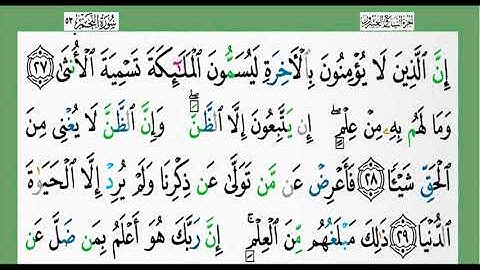 سُورَةُ النَّجْمِ ٥٣
إِنَّ الَّذِينَ لَا يُؤْمِنُونَ بِالْآخِرَةِ لَيُسَمُّونَ الْمَلَٰٓئِكَةَ تَسْمِيَةَ الْأُنْثَىٰ ﴿٢٧﴾
وَمَا لَهُم بِهِۦ مِنْ عِلْمٍ ۖ إِن يَتَّبِعُونَ إِلَّا الظَّنَّ ۖ وَإِنَّ الظَّنَّ لَا يُغْنِى مِنَ
الْحَقِّ شَيْـًٔا ﴿٢٨﴾ فَأَعْرِضْ عَن مَّن تَوَلَّىٰ عَن ذِكْرِنَا وَلَمْ يُرِدْ إِلَّا الْحَيَوٰةَ
الدُّنْيَا ﴿٢٩﴾ ذَٰلِكَ مَبْلَغُهُم مِّنَ الْعِلْمِ ۚ إِنَّ رَبَّكَ هُوَ أَعْلَمُ بِمَن ضَلَّ عَن